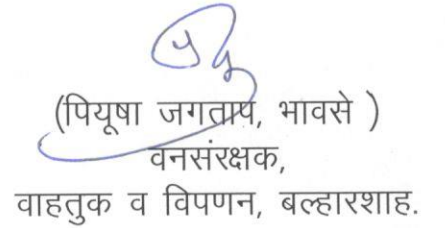 (पियूषा जगताप, भावसे )
वनसंरक्षक,
वाहतुक व विपणन, बल्हारशाह.